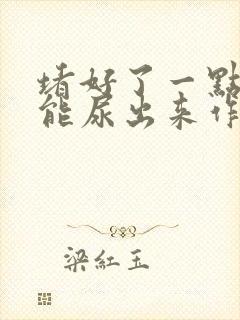 堵好了一點
能尿出来作
梁紅玉